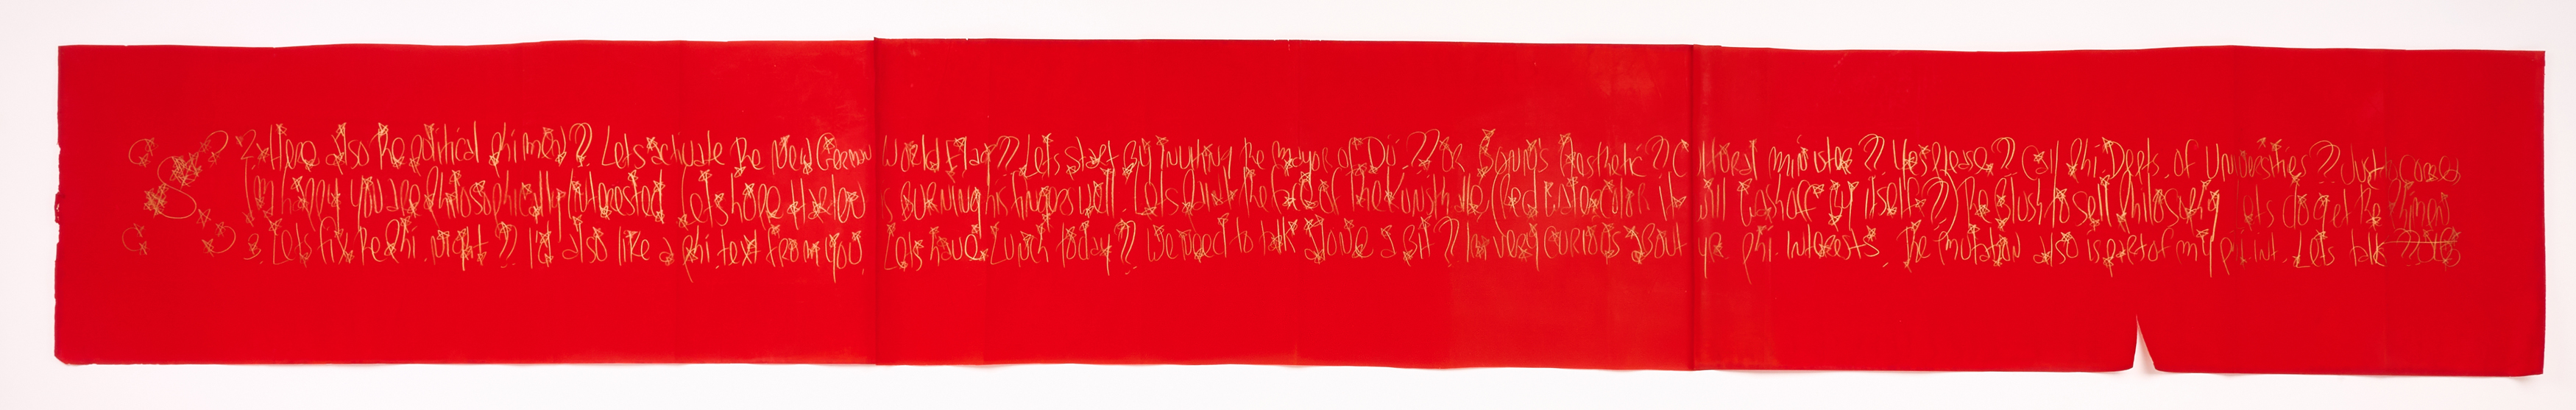 Here also the political phimen?? Lets activate the New German World Flag?? Lets start by inviting the mayor of Dü.?? or Bonns Aesthetic?? Cultural minister?? Yes please?? Call Phi. Depts. of Universities?? Just
I'm happy you are philosophically interested. Lets hope is burning his fingers well. Lets paint the face of the Kunsthalle (Red watercolor it will wash off by itself??) The push to sell philosophy lets do get the Phimen
Lets fix the phi. night?? I'd also like a phi. text from you. Lets have Lunch today?? We need to talk alone a bit?? Im very curious about yr. phi. interests. The mutation also is part of my phi. int. Lets talk